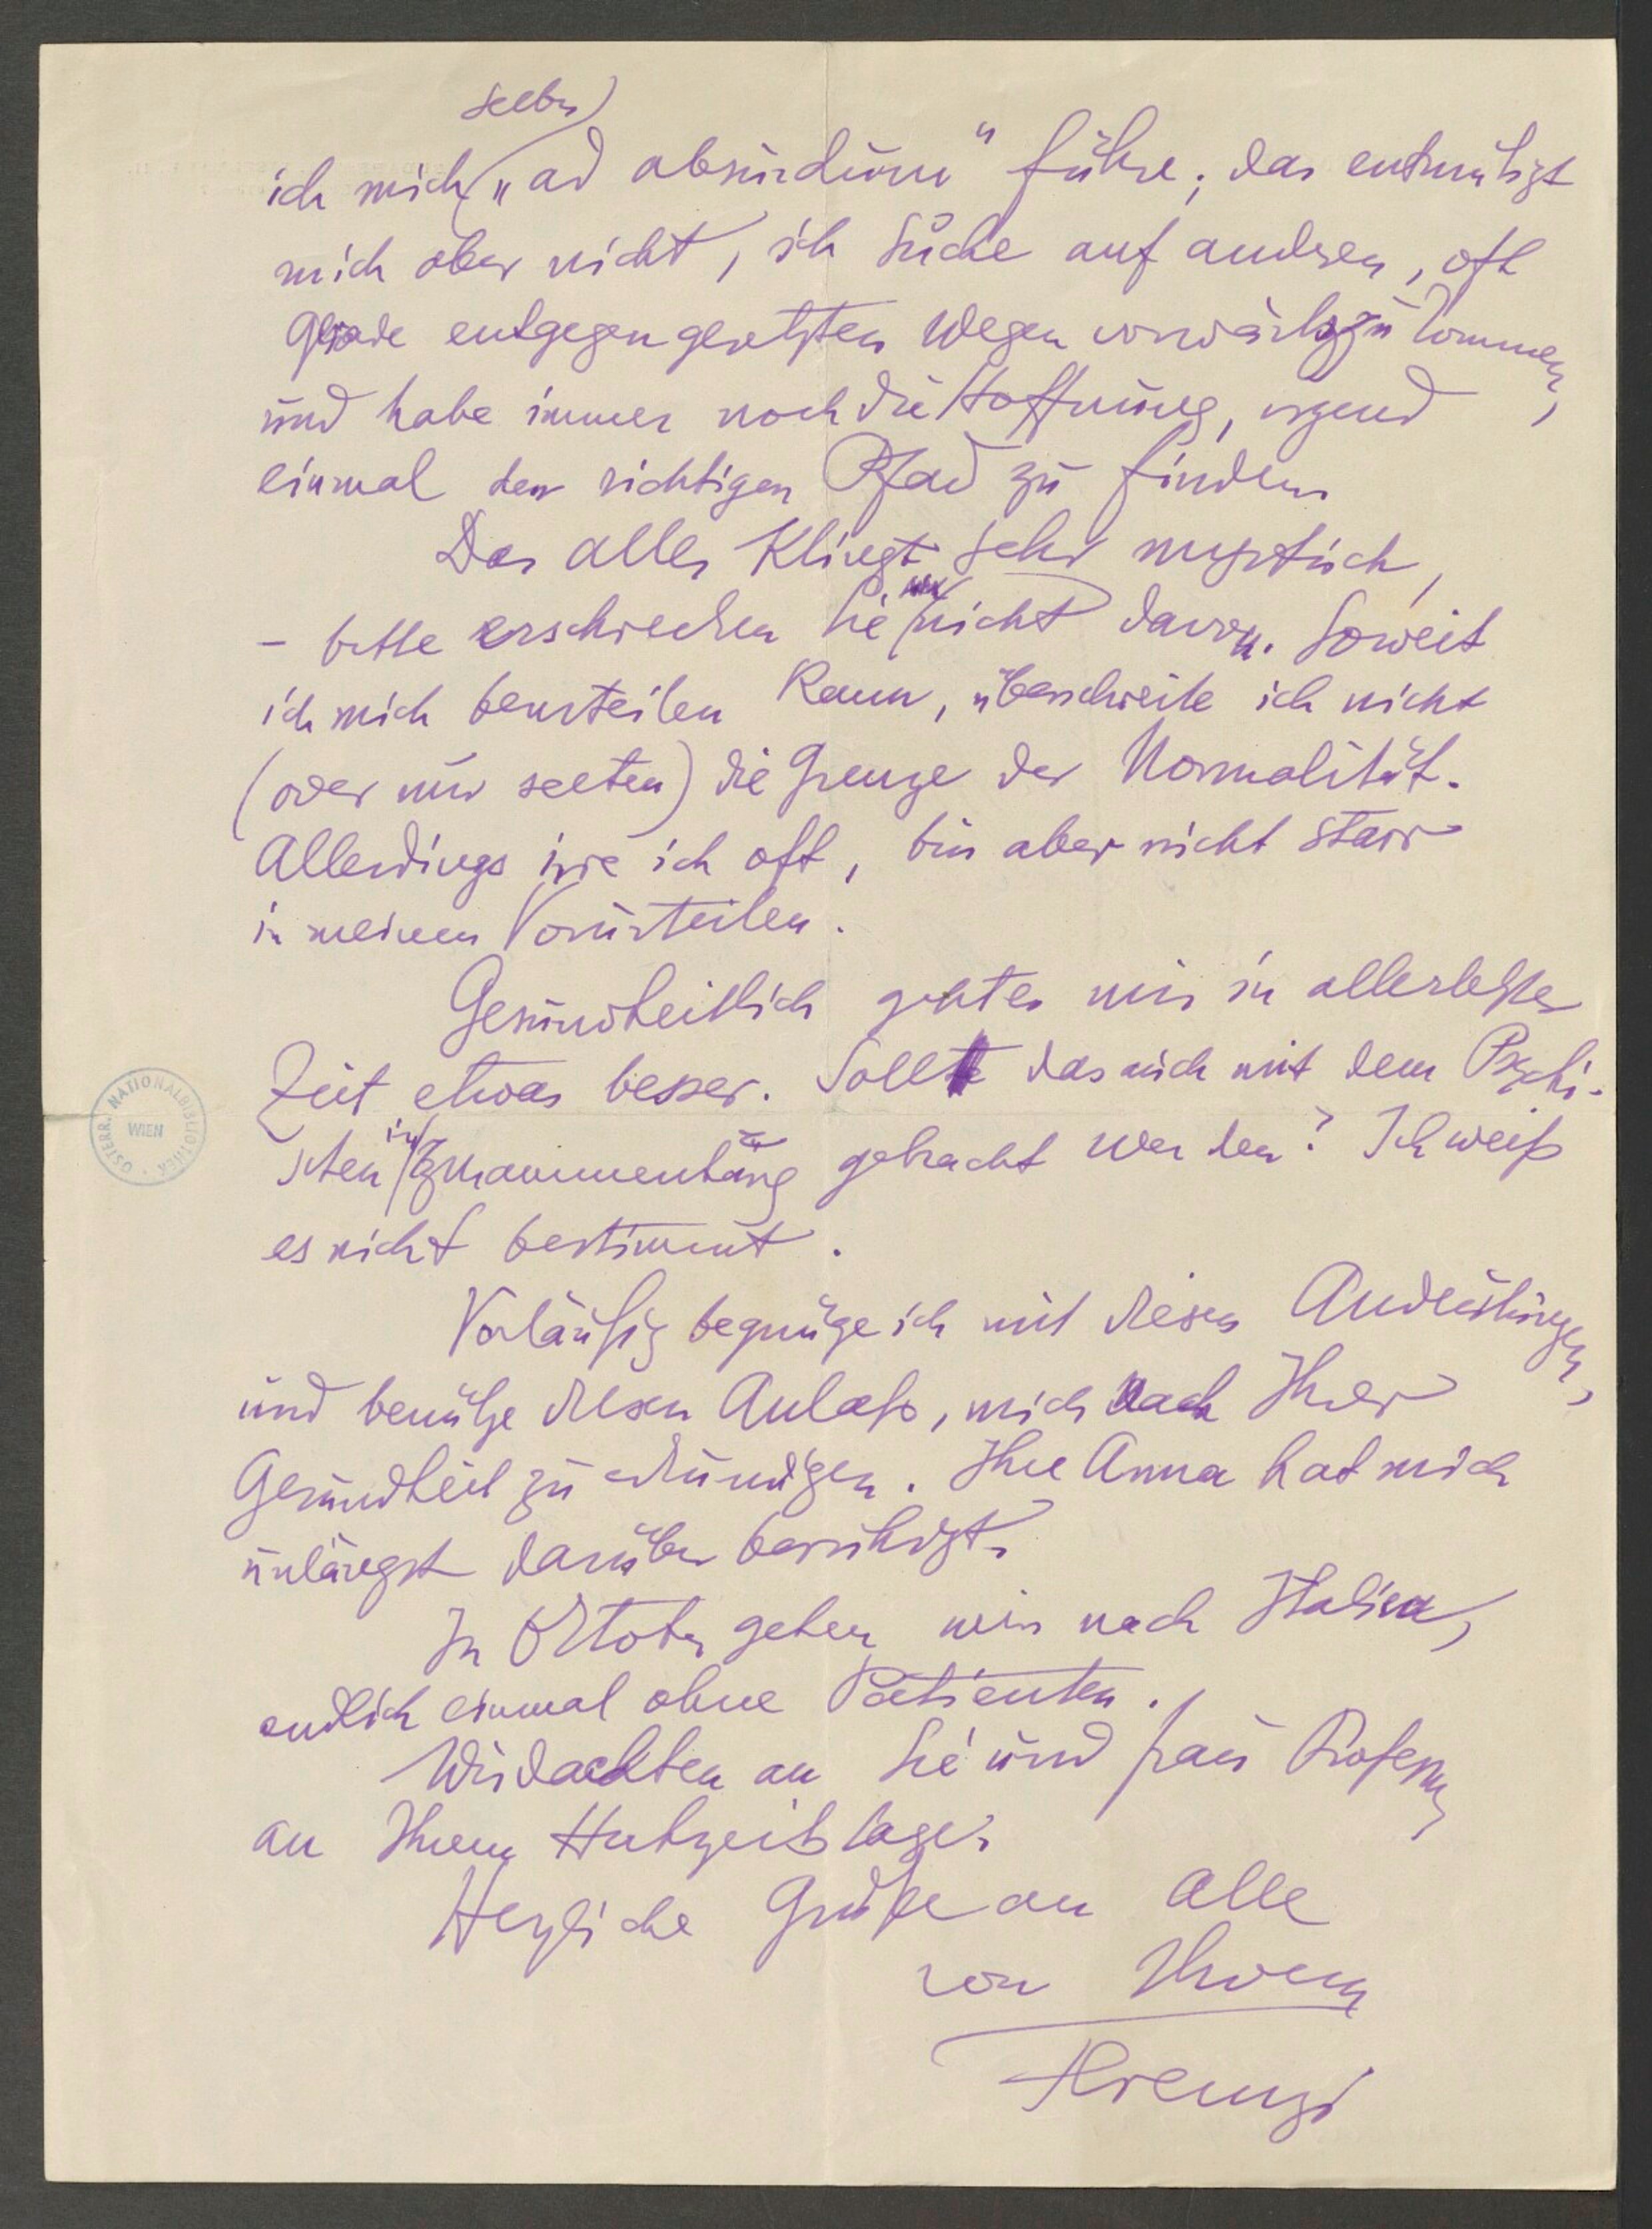 selbst
ich mich „ad absurdum“ führe; das entmutigt
mich aber nicht, ich suche auf andren, oft
gerade entgegengesetzten Wegen vorwärts zu kommen,
und habe immer noch die Hoffnung, irgend
einmal den richtigen Pfad zu finden
Das alles klingt sehr mystisch,
– bitte erschrecken Sie nicht davon. Soweit
ich mich beurteilen kann, überschreite ich nicht
(oder nur selten) die Grenze der Normalität.
Allerdings irre ich oft, bin aber nicht starr
in meinen Vorurteilen.
Gesundheitlich geht es mir in allerletzter
Zeit etwas besser. Sollte das auch mit dem Psychi-
schen in Zusammenhang gebracht werden? Ich weiß
es nicht bestimmt.
Vorläufig begnüge ich mit diesen Andeutungen,
und benütze diesen Anlaß, mich nach Ihrer
Gesundheit zu erkundigen. Ihre Anna hat mich
unlängst darüber beruhigt.
In Oktober gehen wir nach Italien,
endlich einmal ohne Patienten.
Wir dachten an Sie und Frau Professor
an Ihrem Hochzeitstage.
Herzliche Grüße an alle
von Ihrem
Ferenczi
ÖSTERR. NATIONALBIBLIOTHEK
WIEN